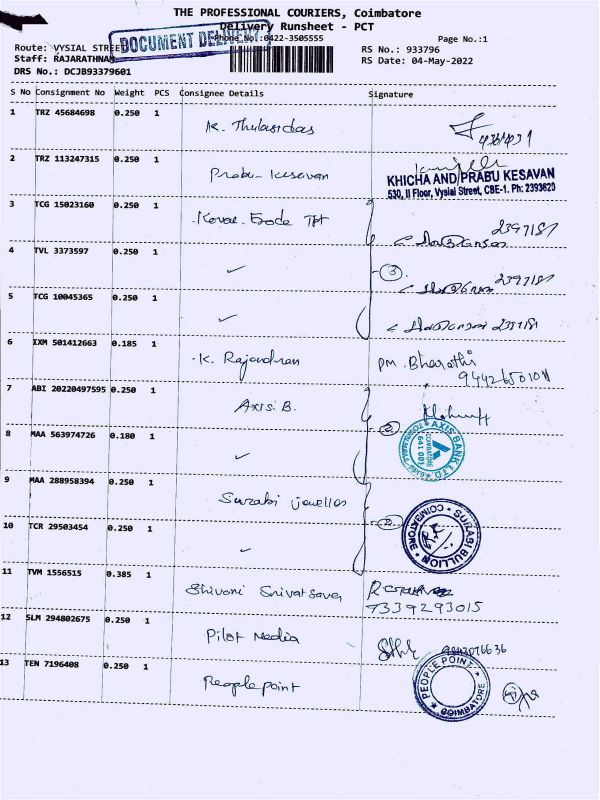 THE PROFESSIONAL COURIERS, Coimbatore
Delivery Runsheet - PCT
Phone No.:0422-3505555
Page No.:1
DOCUMENT DELIVERY
Route: VYSIAL STREET
RS No.: 933796
Staff: RAJARATHNAM
RS Date: 04-May-2022
DRS No.: DCJB93379601
S No Consignment No Weight PCS Consignee Details Signature
1 TRZ 45684698 0.250 1 K. Thulasidas
2 TRZ 113247315 0.250 1 Prabu Kesavan
KHICHA AND PRABU KESAVAN
530, II Floor, Vysial Street, CBE-1. Ph: 2393620
3 TCG 15023160 0.250 1 Kovai Erode TPT 2397187
4 TVL 3373597 0.250 1 ✓ 3 2397187
5 TCG 10045365 0.250 1 ✓
6 IXM 501412663 0.185 1 K. Rajendran PM. Bharathi
7 ABI 20220497595 0.250 1 Axis B.
8 MAA 563974726 0.180 1 ✓ 2
AXIS BANK LTD
COIMBATORE
641 001
9 MAA 288958394 0.250 1 Surabi jewellos
10 TCR 29503454 0.250 1 ✓ 2
SURABI BULLION
COIMBATORE
11 TVM 1556515 0.385 1 Shivani Srivatsava
7339293015
12 SLM 294802675 0.250 1 Pilot Media
13 TEN 7196408 0.250 1 People point
PEOPLE POINT
COIMBATORE